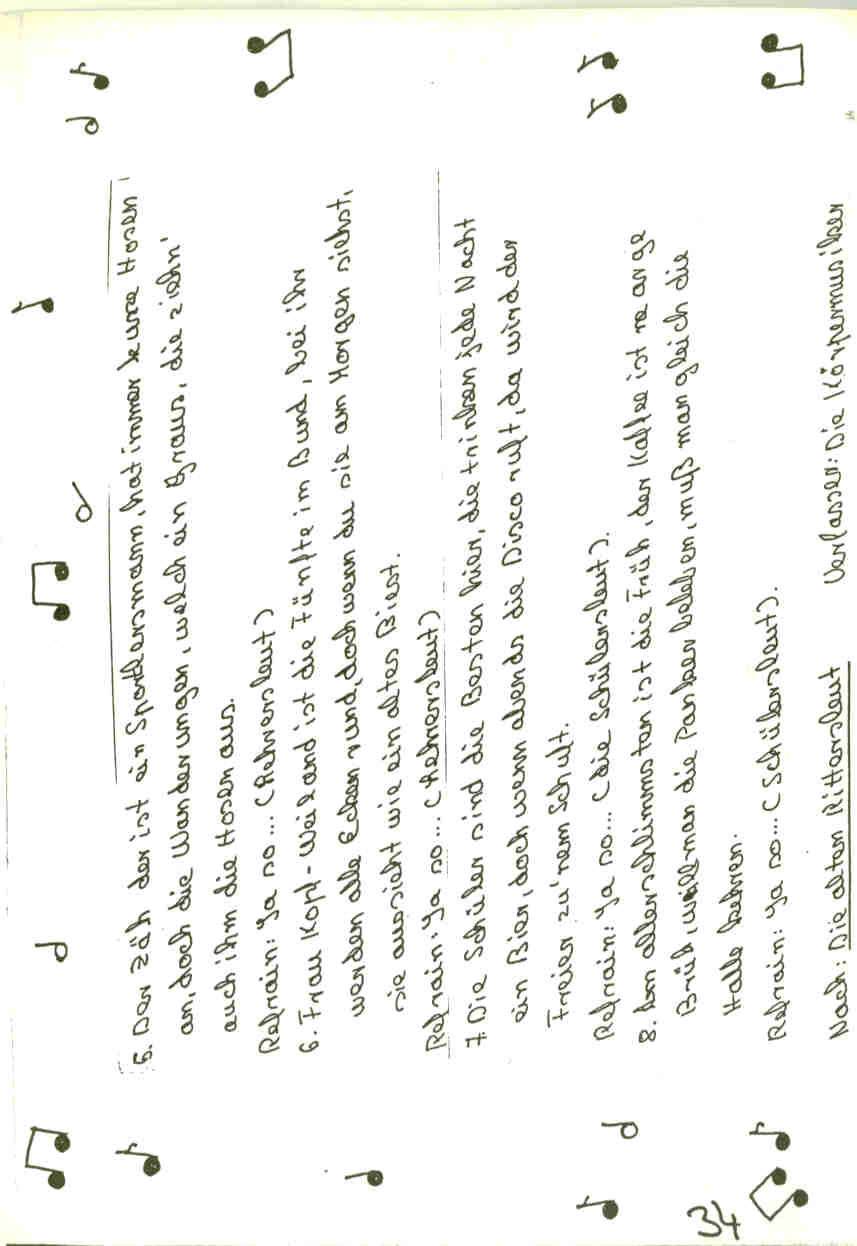 5. Der Zäh der ist ein Sportlersmann, hat immer kurze Hosen
an, doch die Wanderungen, welch ein Graus, die zieh'n
auch ihm die Hosen aus.
Refrain: Ja so... (Lehrersleut)
6. Frau Kopf-Weiland ist die Fünfte im Bund, bei ihr
werden alle Ecken rund, doch wenn du sie am Morgen siehst,
sie aussieht wie ein altes Biest.
Refrain: Ja so... (Lehrersleut)
7. Die Schüler sind die Besten hier, die trinken jede Nacht
ein Bier, doch wenn abends die Disco ruft, da wird der
Freier zu'nem Schuft.
Refrain: Ja so... (die Schülersleut).
8. Am allerschlimmsten ist die Früh, der Kaffee ist ne arge
Brüh, will man die Panker beleben, muß man gleich die
Halle kehren.
Refrain: Ja so... (Schülersleut).
Nach: Die alten Rittersleut Verfasser: Die Körpermusiker
34